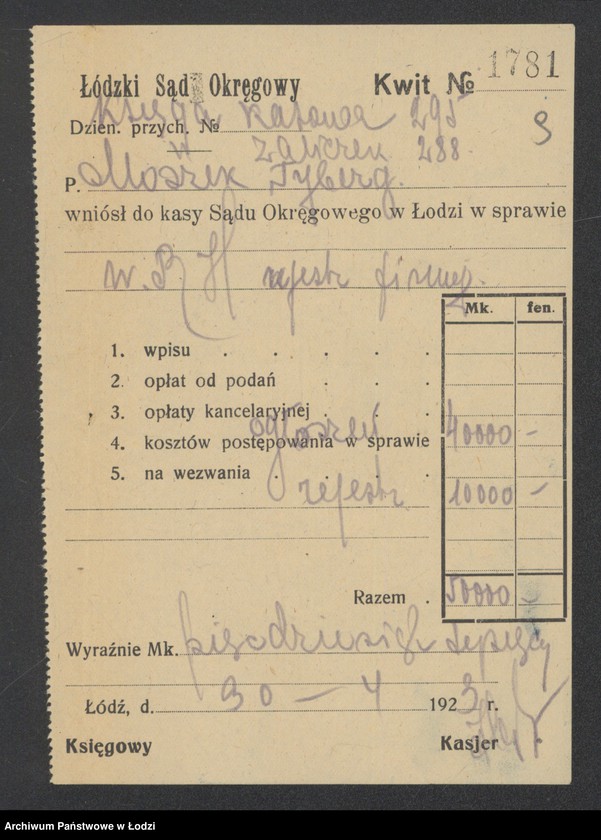 Łódzki Sąd Okręgowy Kwit № 1781
Księga kasowa 295
Dzien. przych. № 9
zaliczek 288
P. Moszek Tyberg.
wniósł do kasy Sądu Okręgowego w Łodzi w sprawie
w. RH rejestr firmy.
Mk. fen.
1. wpisu . . . . .
2. opłat od podań . . .
3. opłaty kancelaryjnej . . .
ogłoszeń
4. kosztów postępowania w sprawie 40000 –
5. na wezwania . . . .
rejestr 10000 –
Razem . 50000 –
Wyraźnie Mk. pięćdziesiąt tysięcy
Łódź, d. 30 – 4 1923 r.
Księgowy Kasjer
Archiwum Państwowe w Łodzi